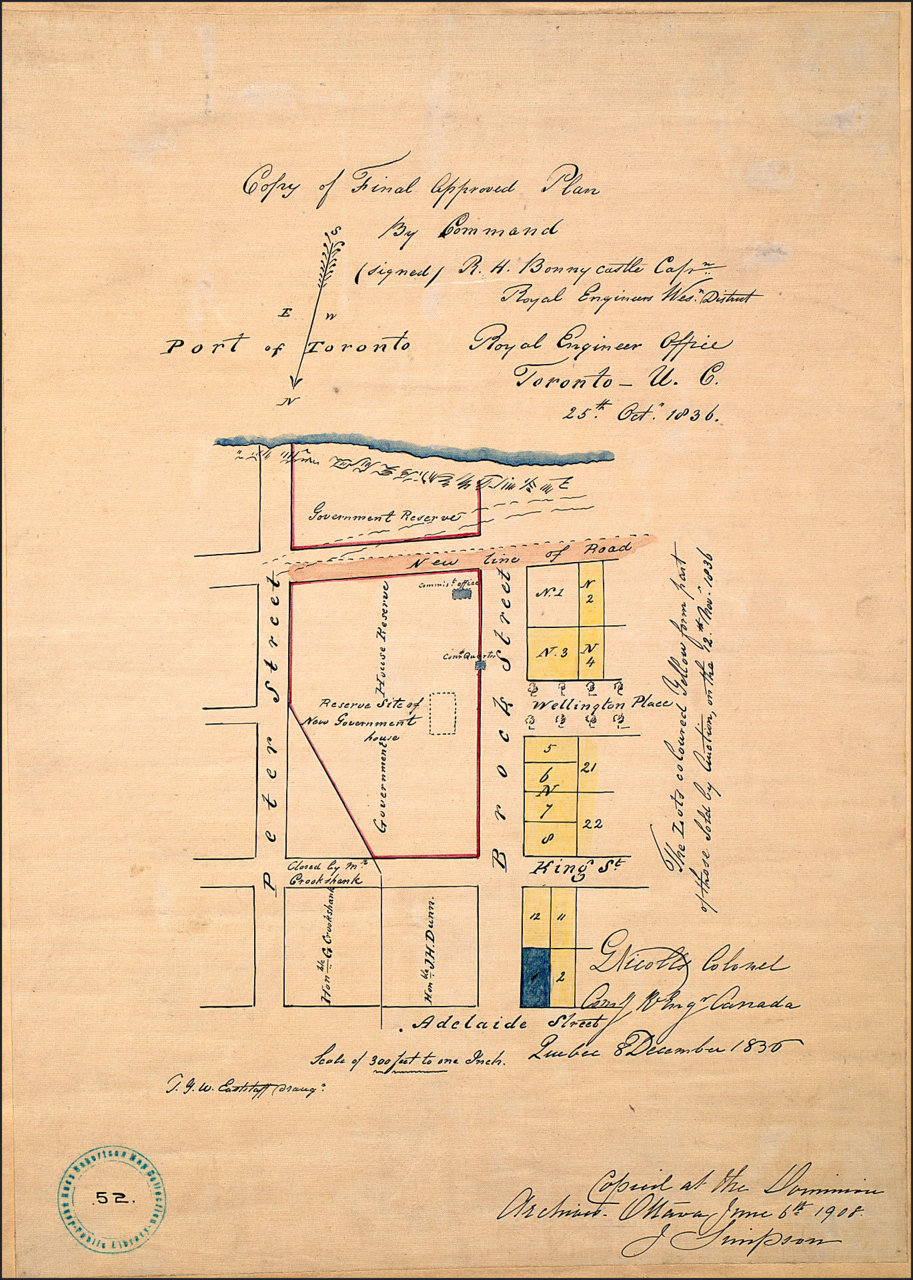 Copy of Final Approved Plan
By Command
(signed) R. H. Bonnycastle Capn
Royal Engineers Wesn. District
S
E W
N
Port of Toronto
Royal Engineer Office
Toronto — U. C.
25th Octr. 1836.
Government Reserve
New line of Road
Commist. office
House Reserve
Reserve Site of
New Government
house
Government
Peter Street
Brock Street
N. 1
N 2
N. 3
N 4
Wellington Place
5
6
N
7
8
21
22
King St.
Closed by Mr.
Crookshank
Honble G. Crookshank
Honble J. H. Dunn.
12
11
1
2
Adelaide Street
The Lots coloured Yellow form part
of those Sold by Auction, on the 12th Novr. 1836
Colonel
Canada
Quebec 8 December 1836
Scale of 300 feet to one Inch.
T. G. W. Eaststaff Draugr.
John Ross Robertson Map Collection
Public Library
52.
Copied at the Dominion
Archives. Ottawa June 6th 1908.
J Simpson